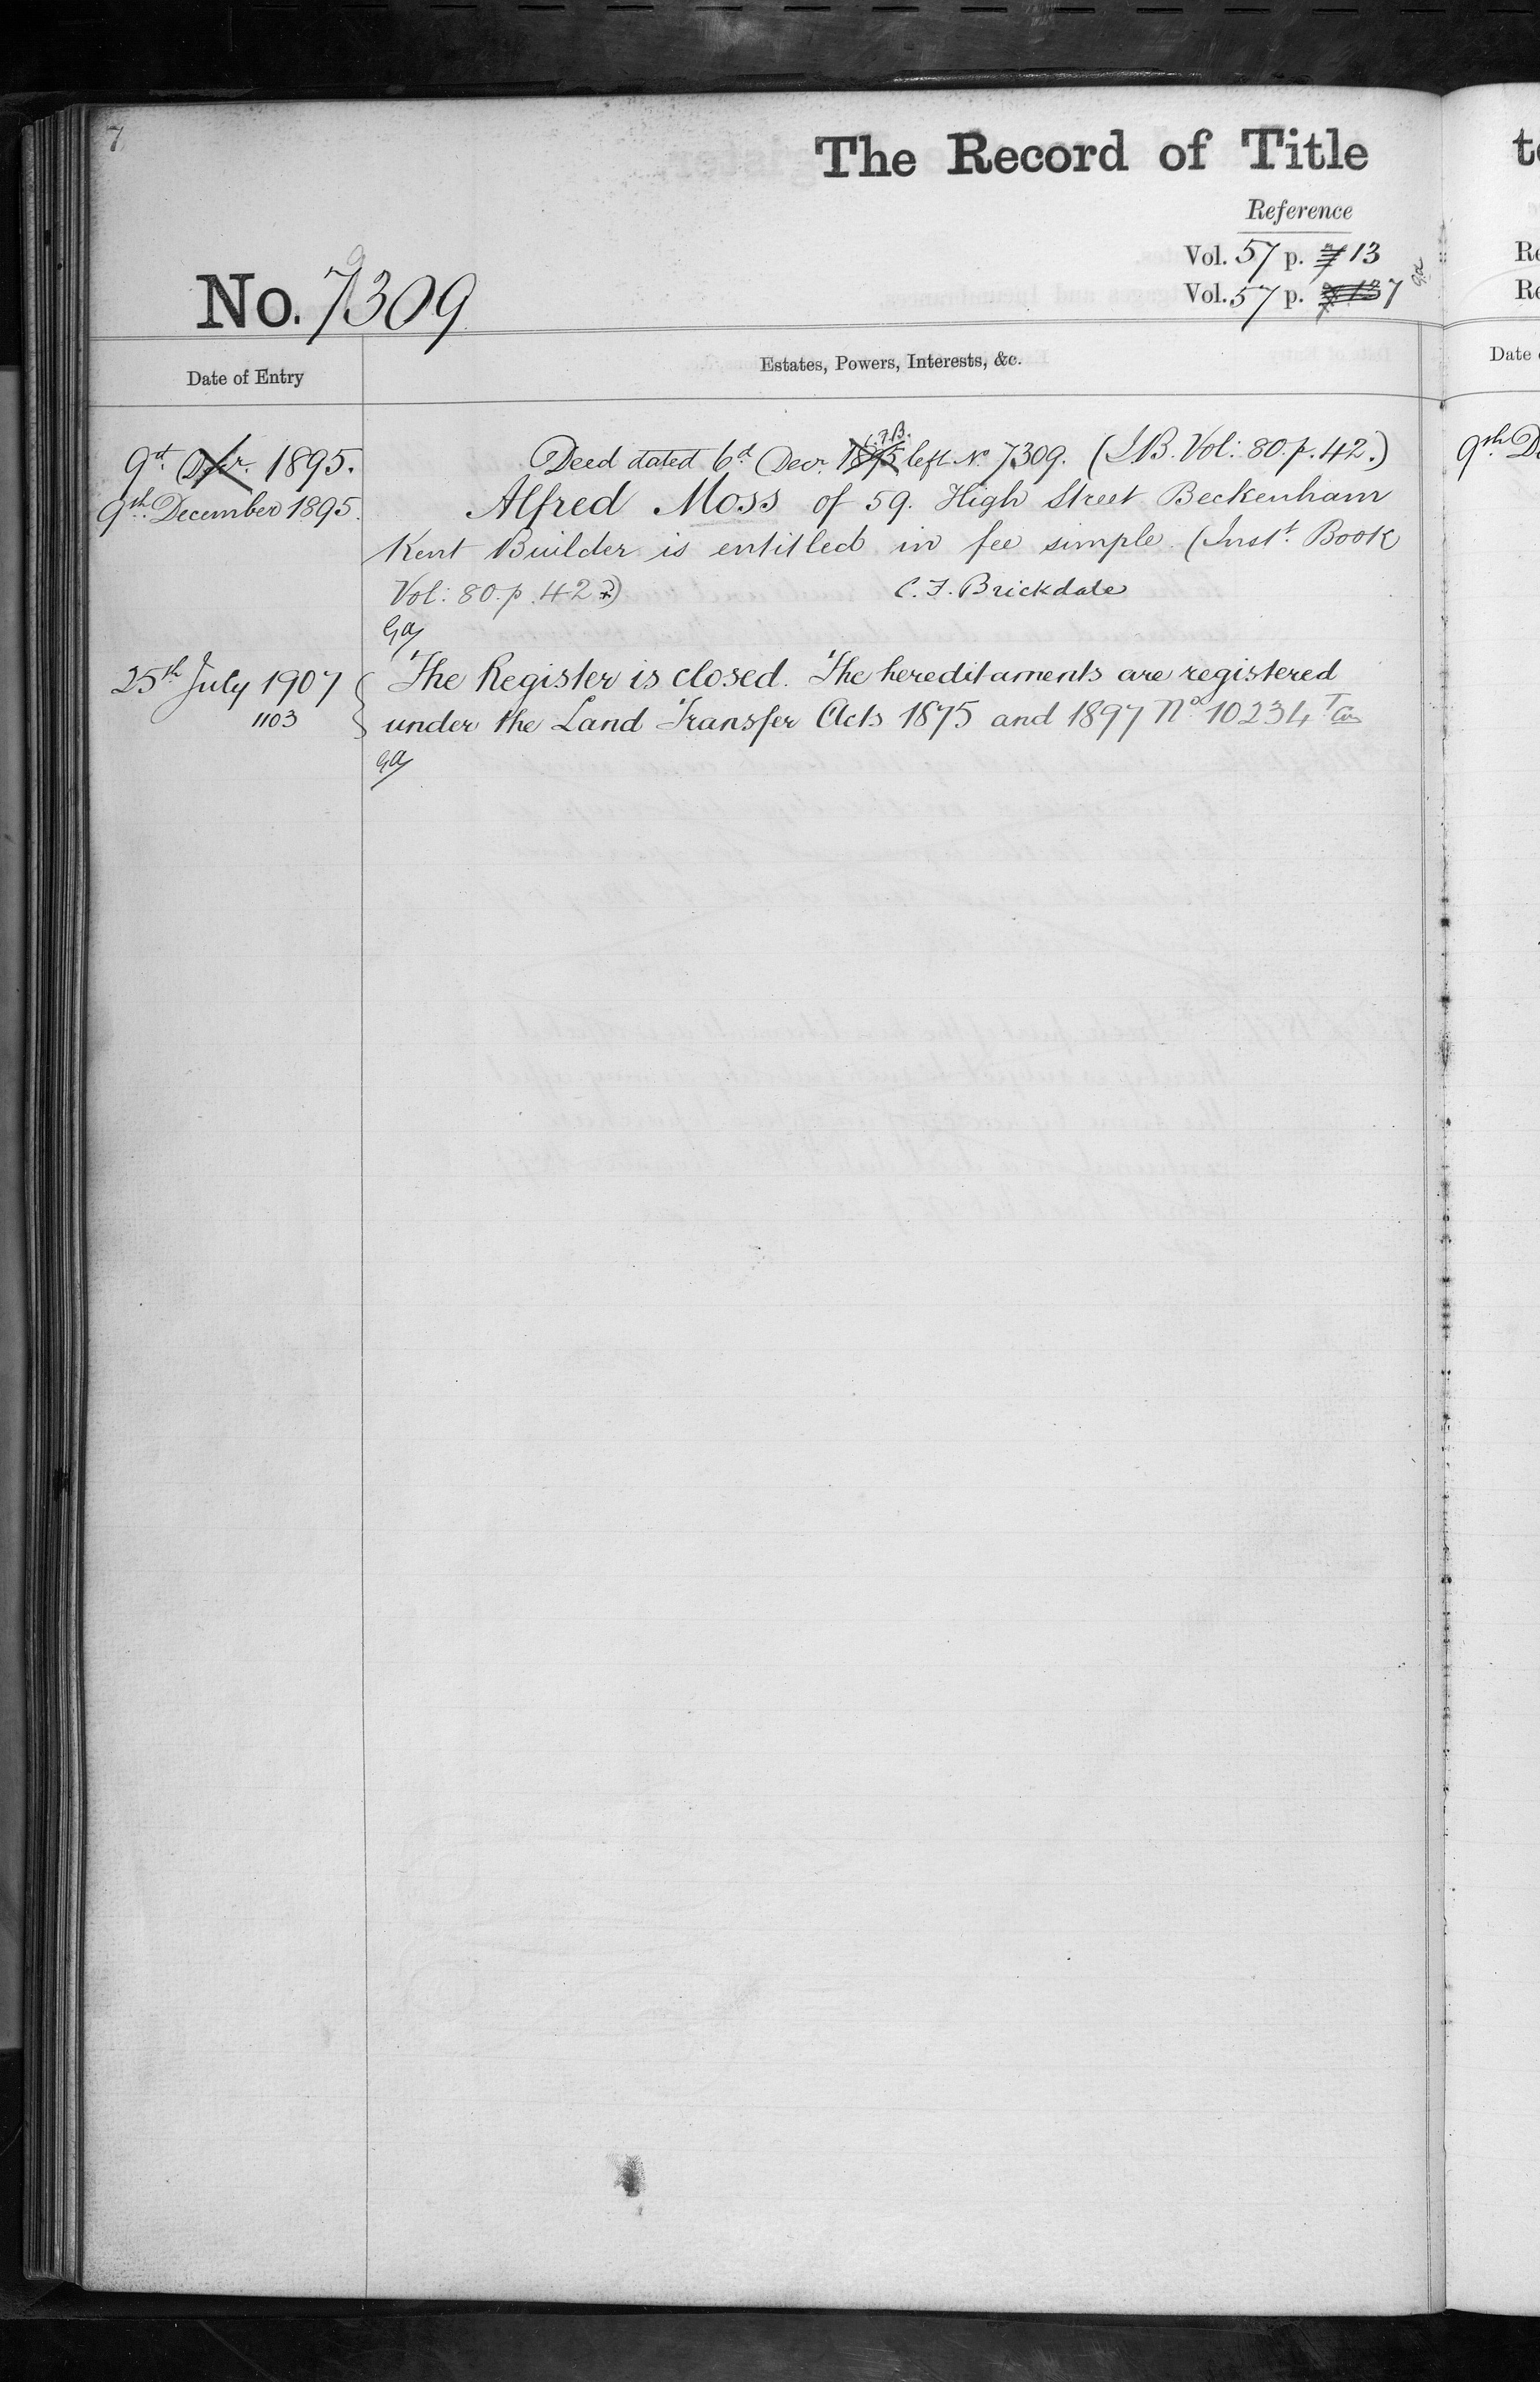 7
The Record of Title
Reference
Vol. 57 p. 7 13
Vol. 57 p. 7 13 7
No. 7309
Date of Entry
Estates, Powers, Interests, &c.
9th Decr. 1895.
C.F.B.
Deed dated 6th Decr. 1895 left No. 7309. (I.B. Vol: 80. p. 42.)
9th December 1895.
Alfred Moss of 59. High Street Beckenham
Kent Builder is entitled in fee simple. (Inst. Book
Vol: 80. p. 42.) C. F. Brickdale
GA
25th July 1907
The Register is closed. The hereditaments are registered
1103
under the Land Transfer Acts 1875 and 1897 No. 10234
GA
t
Re
Re
Date
9th D